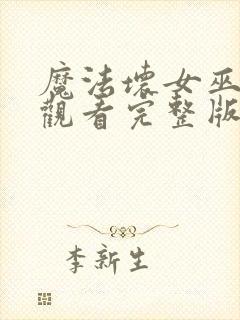 魔法壞女巫
觀看完整版
李新生